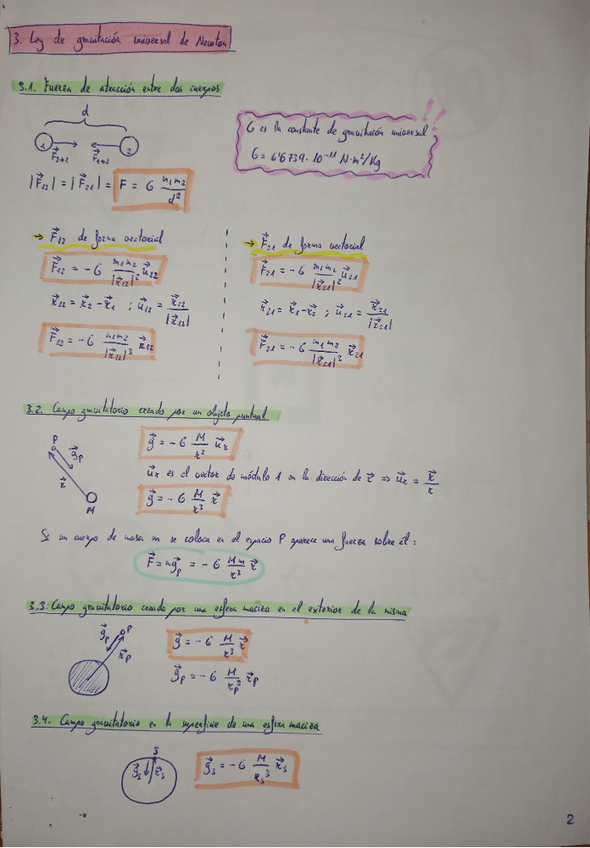 3. Ley de gravitación universal de Newton
3.1. Fuerza de atracción entre dos cuerpos
d
1 2
F⃗₂→₁ F⃗₁→₂
G es la constante de gravitación universal !!
G = 6'6739 · 10⁻¹¹ N·m²/Kg
|F⃗₁₂| = |F⃗₂₁| = F = G m₁m₂/d²
→ F⃗₁₂ de forma vectorial
F⃗₁₂ = -G m₁m₂/|r⃗₁₂|² u⃗₁₂
r⃗₁₂ = r⃗₂ - r⃗₁ ; u⃗₁₂ = r⃗₁₂/|r⃗₁₂|
F⃗₁₂ = -G m₁m₂/|r⃗₁₂|³ r⃗₁₂
→ F⃗₂₁ de forma vectorial
F⃗₂₁ = -G m₁m₂/|r⃗₂₁|² u⃗₂₁
r⃗₂₁ = r⃗₁ - r⃗₂ ; u⃗₂₁ = r⃗₂₁/|r⃗₂₁|
F⃗₂₁ = -G m₁m₂/|r⃗₂₁|³ r⃗₂₁
3.2. Campo gravitatorio creado por un objeto puntual
P
g⃗p
r⃗
M
g⃗ = -G M/r² u⃗r
u⃗r es el vector de módulo 1 en la dirección de r⃗ ⇒ u⃗r = r⃗/r
g⃗ = -G M/r³ r⃗
Si un cuerpo de masa m se coloca en el espacio P aparece una fuerza sobre él:
F⃗ = m g⃗p = -G Mm/r³ r⃗
3.3. Campo gravitatorio creado por una esfera maciza en el exterior de la misma
g⃗p P
r⃗p
g⃗ = -G M/r³ r⃗
g⃗p = -G M/rp³ r⃗p
3.4. Campo gravitatorio en la superficie de una esfera maciza
S
g⃗s r⃗s
g⃗s = -G M/rs³ r⃗s
2